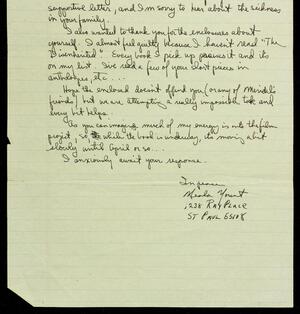 supportive letter, and I'm sorry to hear about the sickness
in your family.
I also wanted to thank you for the enclosures about
yourself. I almost feel guilty because I haven't read "The
Disinherited". Every book I pick up praises it and its
on my list. I've read a few of your short pieces in
anthologies, etc....
Hope the enclosed doesn't offend you (or any of Meridel's
friends) but we are attempting a really impossible task and
every bit helps.
As you can imagine, much of my energy is into the film
project so, while the book is underway, its moving a bit
slowly until April or so....
I anxiously await your response.
In peace,
1238 RAY PLACE
ST PAUL 55108